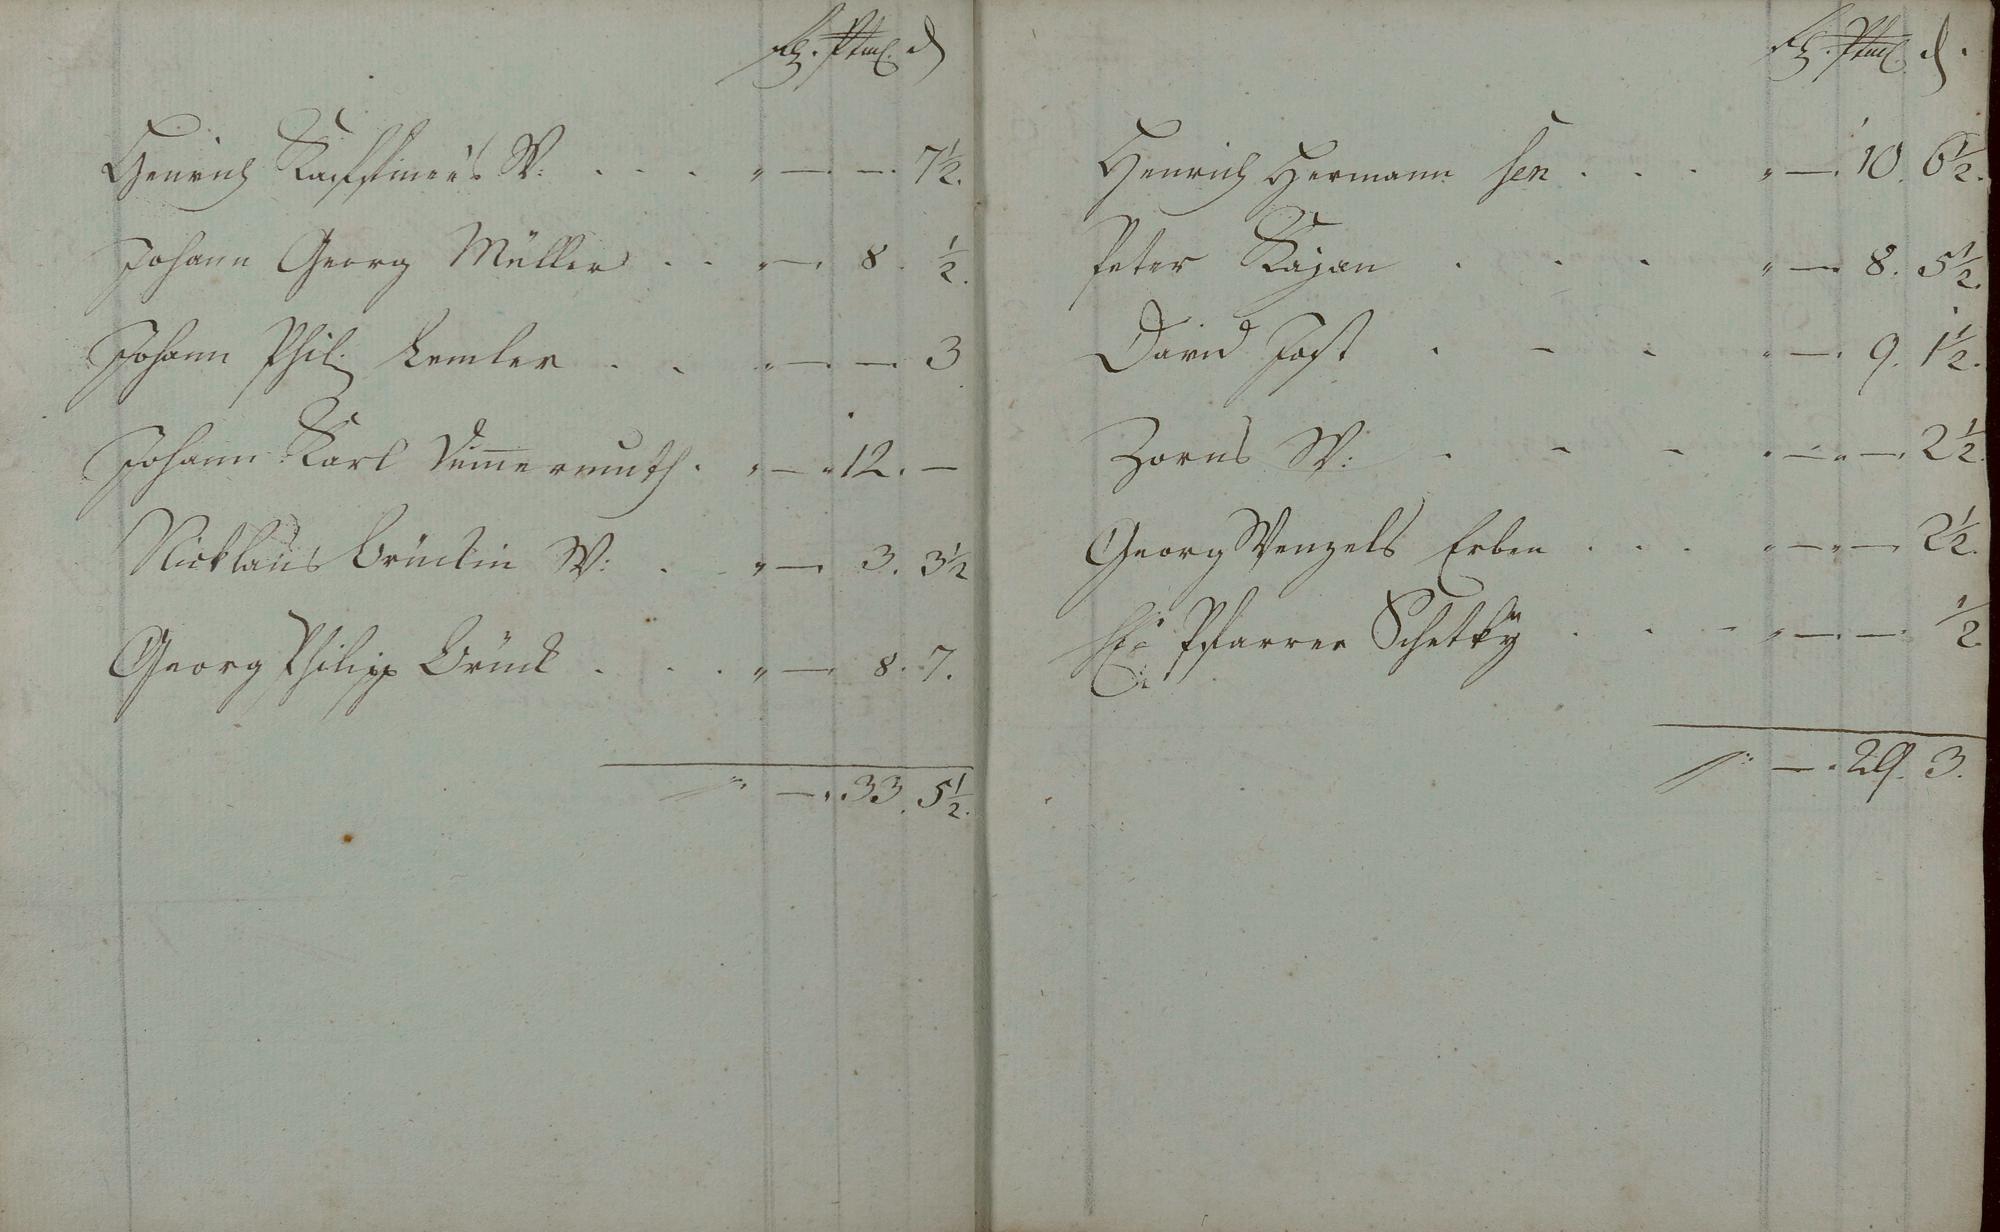 Henrich W: . . . „ — . — . 7½.
Johann Georg Müller . . „ — . 8 . ½.
Johann Phil. Lemler . . „ — . — . 3
Johann Karl Dümermuth . „ — „ 12. —
Nicklaus Brückin W: . „ — . 3. 3½
Georg Philipp Brück . . . „ — . 8. 7.
„ — . . 33. 5½.
Henrich Hermann sen . . . „ — . 10. 6½.
Peter Kajan . . . „ — . 8. 5½.
David Jost . - - „ — . 9. 1½.
Zorns W: . - - . — „ — . 2½.
Georg Wenzels Erben . . . „ — „ — 2½.
Pfarrer Schetky . . - „ — . — . ½.
— . 29. 3.